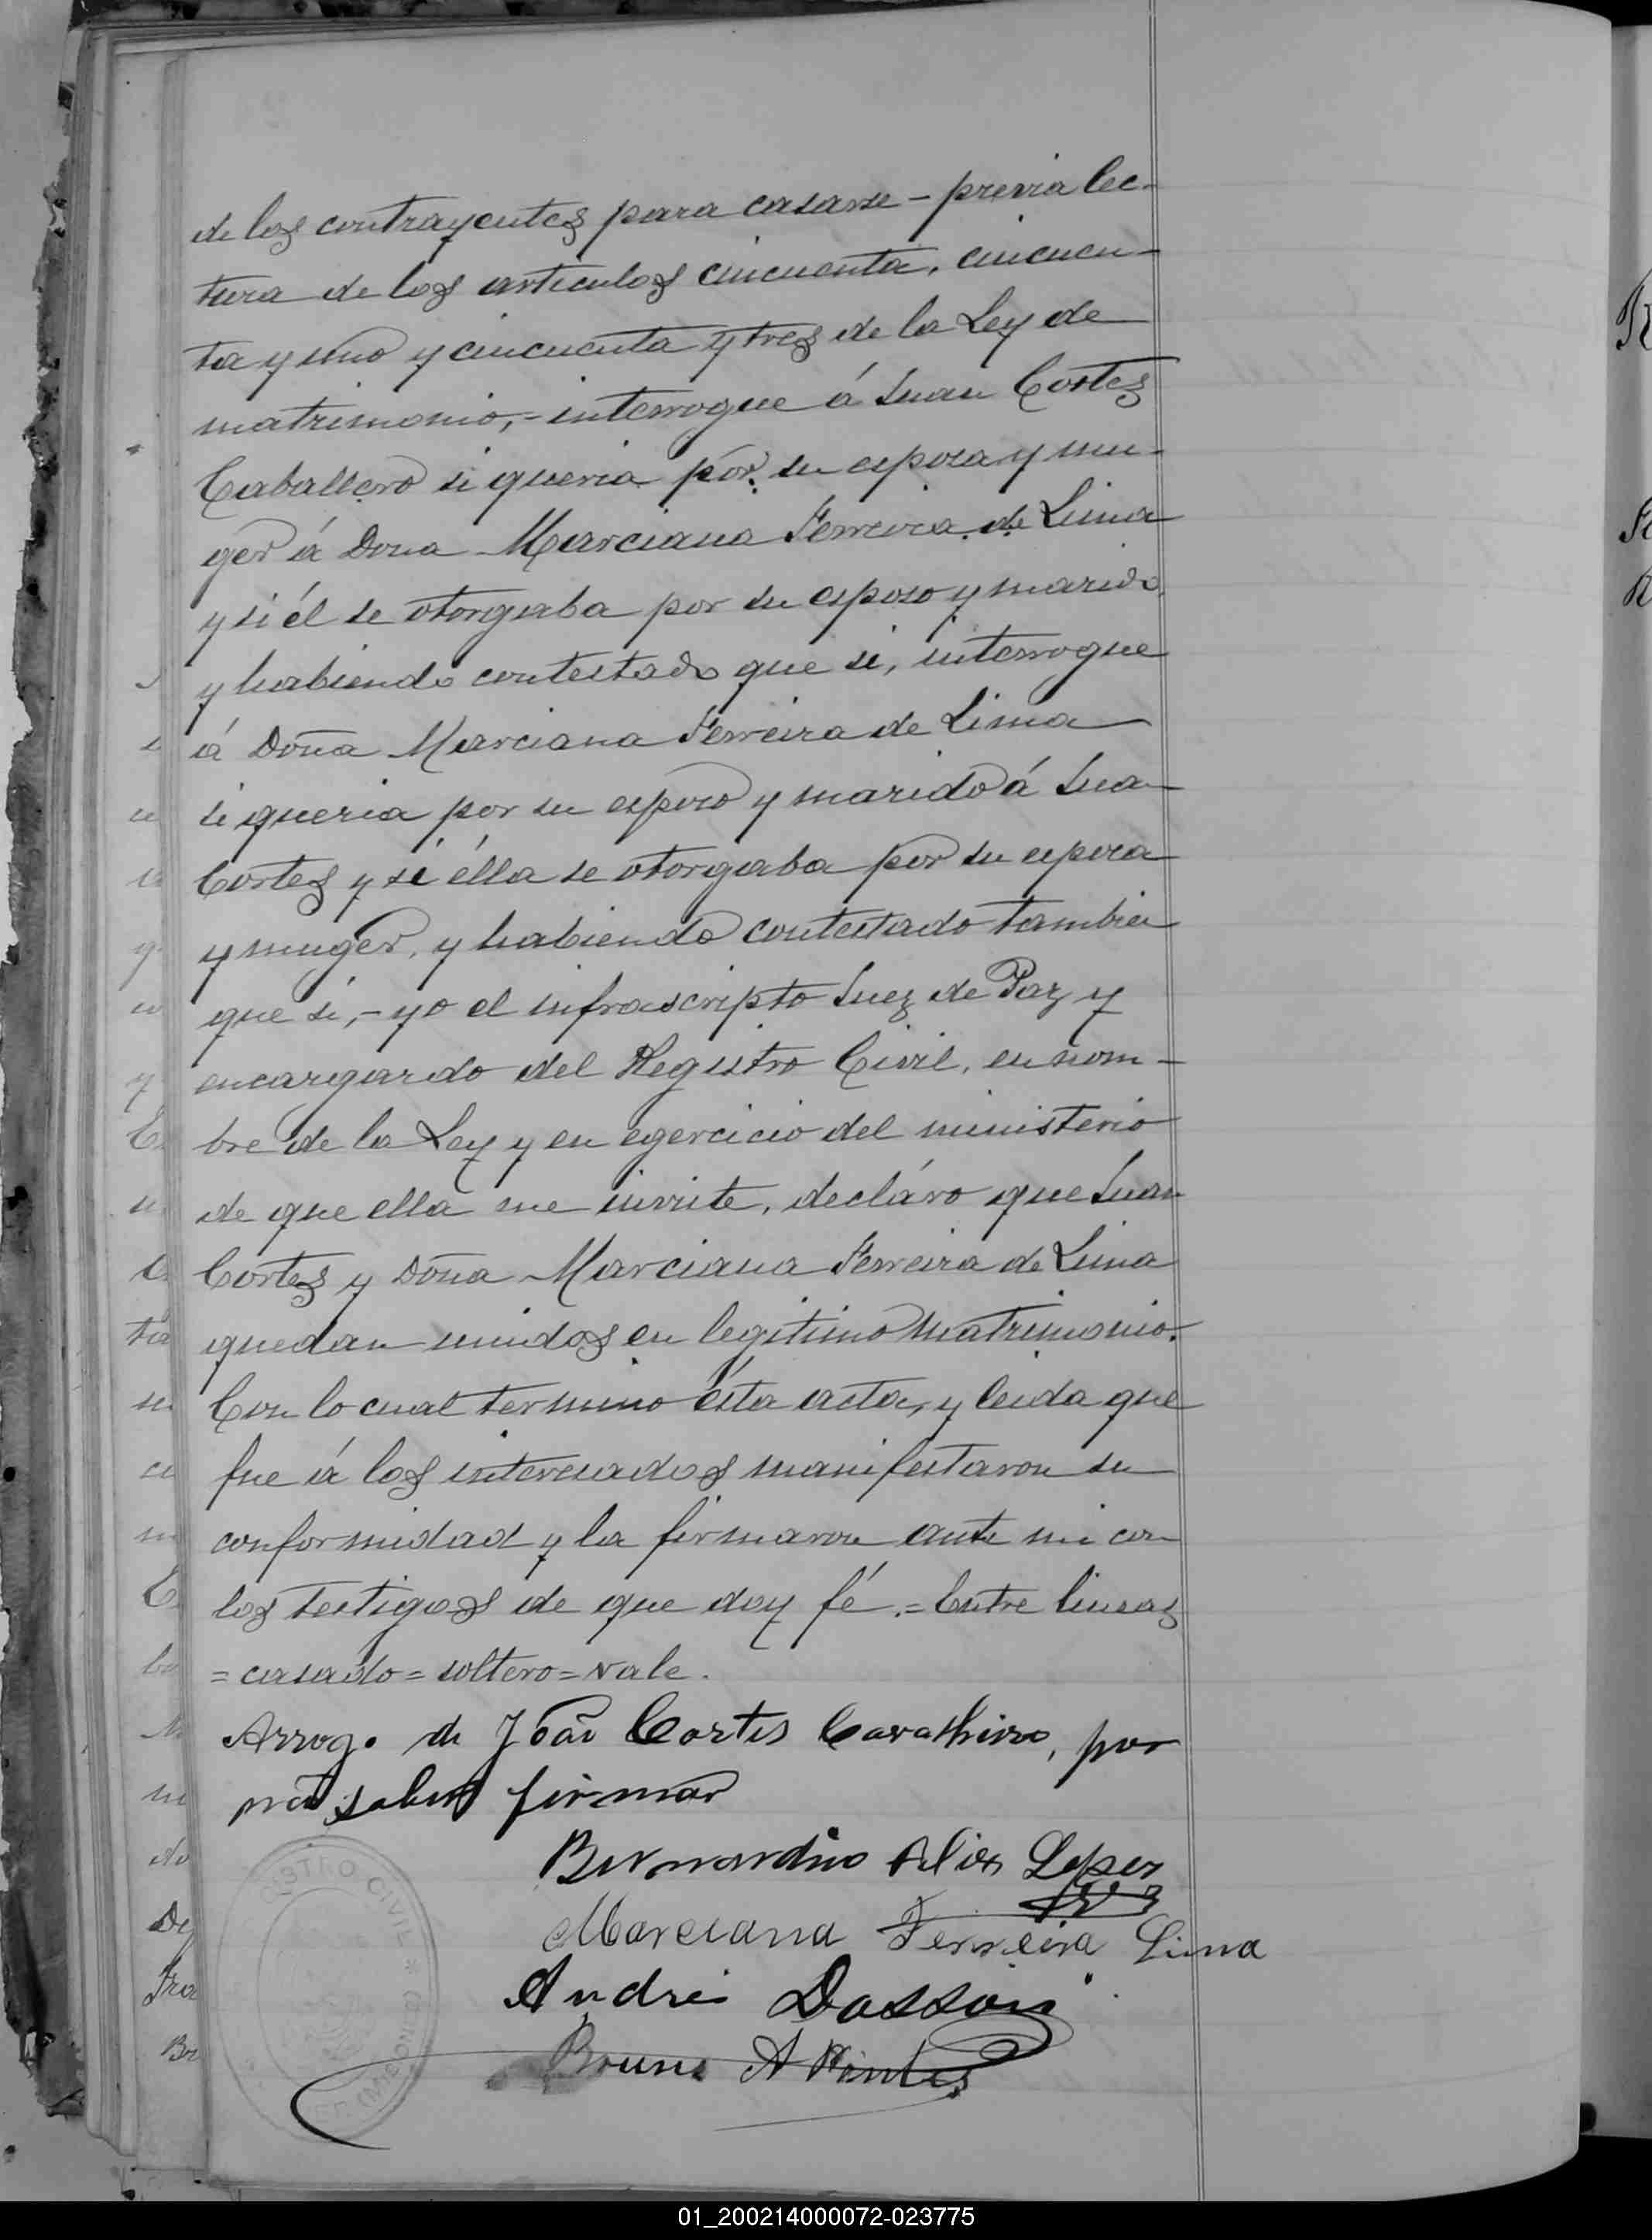 de los contrayentes para casarse - previa lec-
tura de los articulos cincuenta, cincuen-
ta y uno y cincuenta y tres de la Ley de
matrimonio, - interrogue á Juan Cortes
Caballero si queria por su esposa y mu-
ger á Dona Marciana Ferreira de Lima
y si él se otorgaba por su esposo y marido,
y habiendo contestado que si, interrogue
á Doña Marciana Ferreira de Lima
si queria por su esposo y marido á Jua
Cortes y si élla se otorgaba por su esposa
y muger, y habiendo contestado tambien
que si, - yo el infrascripto Juez de Paz y
encargardo del Registro Civil, en nom-
bre de la Ley y en egercicio del ministerio
de que ella me inviste, decláro que Juan
Cortes y Doña Marciana Ferreira de Lima
quedan unidos en legitimo matrimonio.
Con lo cual termino ésta acta, y leida que
fue á los interesados manifestaron su
conformidad y la firmaron ante mi con
los testigos de que doy fé. = Entre lineas
= casado = soltero = vale.
Arrog. de João Cortes Cavalheiro, por
não saber firmar
Bernardino Lopez
Marciana Ferreira Lima
Andre
Bruno A
ISTRO CIVIL
(MISIONES)
01_200214000072-023775